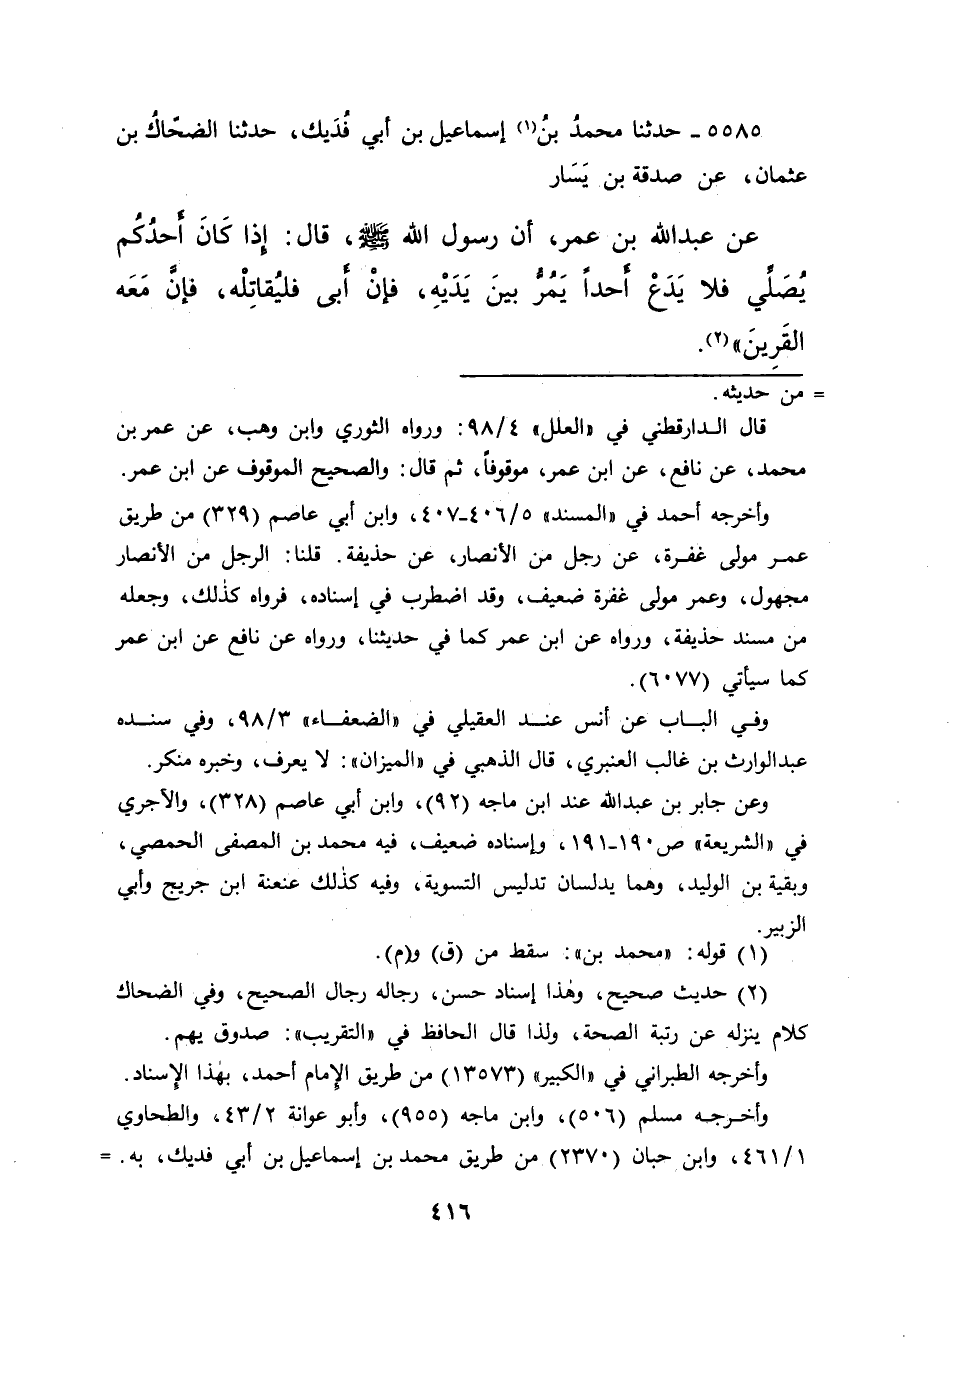 ٥٥٨٥ - حدثنا محمدُ بنُ(١) إسماعيل بن أبي فُدَيك، حدثنا الضحّاكُ بن
عثمان، عن صدقة بن يَسَار
عن عبدالله بن عمر، أن رسول الله ﷺ، قال: إِذا كَانَ أَحدُكُم
يُصَلِّي فلا يَدَعْ أَحداً يَمُرُّ بينَ يَدَيْهِ، فإنْ أَبى فليُقاتِلْه، فإنَّ مَعَه
القَرِينَ»(٢).
= من حديثه.
قال الدارقطني في «العلل» ٩٨/٤: ورواه الثوري وابن وهب، عن عمر بن
محمد، عن نافع، عن ابن عمر، موقوفاً، ثم قال: والصحيح الموقوف عن ابن عمر.
وأخرجه أحمد في «المسند» ٤٠٦/٥-٤٠٧، وابن أبي عاصم (٣٢٩) من طريق
عمر مولى غفرة، عن رجل من الأنصار، عن حذيفة. قلنا: الرجل من الأنصار
مجهول، وعمر مولى غفرة ضعيف، وقد اضطرب في إسناده، فرواه كذلك، وجعله
من مسند حذيفة، ورواه عن ابن عمر كما في حديثنا، ورواه عن نافع عن ابن عمر
كما سيأتي (٦٠٧٧).
وفي الباب عن أنس عند العقيلي في «الضعفاء» ٩٨/٣، وفي سنده
عبدالوارث بن غالب العنبري، قال الذهبي في «الميزان»: لا يعرف، وخبره منكر.
وعن جابر بن عبدالله عند ابن ماجه (٩٢)، وابن أبي عاصم (٣٢٨)، والآجري
في «الشريعة» ص١٩٠-١٩١، وإسناده ضعيف، فيه محمد بن المصفى الحمصي،
وبقية بن الوليد، وهما يدلسان تدليس التسوية، وفيه كذلك عنعنة ابن جريج وأبي
الزبير.
(١) قوله: «محمد بن»: سقط من (ق) و(م).
(٢) حديث صحيح، وهٰذا إسناد حسن، رجاله رجال الصحيح، وفي الضحاك
كلام ينزله عن رتبة الصحة، ولذا قال الحافظ في «التقريب»: صدوق يهم.
وأخرجه الطبراني في «الكبير» (١٣٥٧٣) من طريق الإمام أحمد، بهٰذا الإسناد.
وأخرجه مسلم (٥٠٦)، وابن ماجه (٩٥٥)، وأبو عوانة ٤٣/٢، والطحاوي
٤٦١/١، وابن حبان (٢٣٧٠) من طريق محمد بن إسماعيل بن أبي فديك، به. =
٤١٦